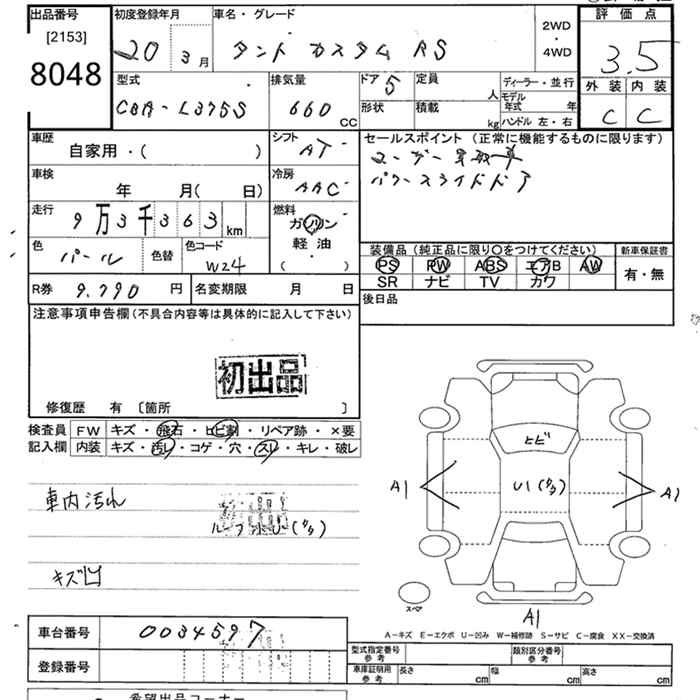 出品番号 初度登録年月 車名・グレード 評価点
[2153] 20年 3月 タント カスタム RS 2WD・4WD 3.5
8048 型式 排気量 ドア 5 定員 人 ディーラー・並行 外装 内装
CBA-L375S 660 CC 形状 積載 kg モデル年式 年 C C
ハンドル 左・右
車歴 シフト セールスポイント (正常に機能するものに限ります)
自家用・( ) AT ユーザー買取車
車検 冷房 パワースライドドア
年 月( 日) AAC
走行 燃料
9万3千363km ガソリン 装備品 (純正品に限り〇をつけてください) 新車保証書
色 色替 色コード 軽油 PS PW ABS エアB AW 有・無
パール W24 ( ・ ) SR ナビ TV カワ
R券 9,790円 名変期限 月 日 後日品
注意事項申告欄(不具合内容等は具体的に記入して下さい)
初出品
修復歴 有 〔箇所 〕
検査員 FW キズ・飛石・ヒビ割・リペア跡・×要
記入欄 内装 キズ・汚レ・コゲ・穴・スレ・キレ・破レ
ヒビ
A1 U1(多多) A1
車内汚れ
初出品
キズ凹
スペア
A1
A-キズ E-エクボ U-凹み W-補修跡 S-サビ C-腐食 XX-交換済
車台番号 0034597
登録番号
型式指定番号 参考 類別区分番号 参考
車庫証明用 参考 長さ cm 幅 cm 高さ cm
希望出品コーナー